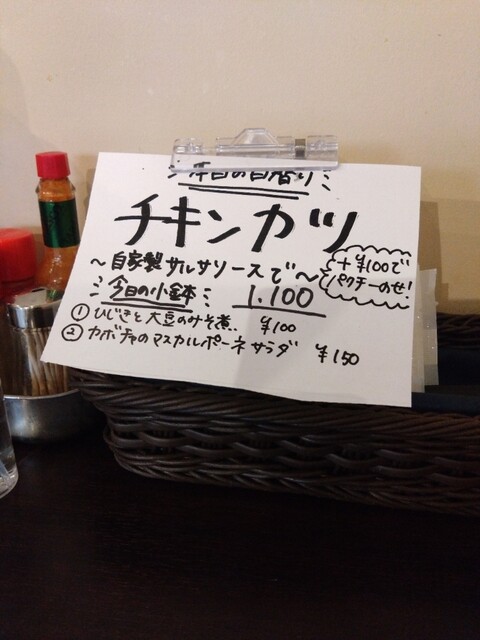 本日の日替り
チキンカツ
〜自家製サルサソースで〜
+¥100で
パクチーのせ!
今日の小鉢
1.100
① ひじきと大豆のみそ煮.. ¥100
② カボチャのマスカルポーネサラダ ¥150